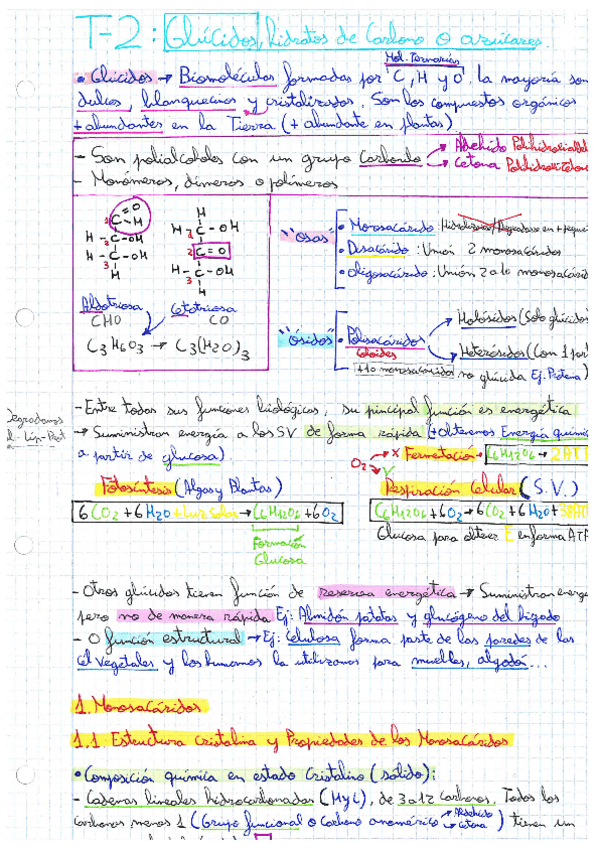 T-2: Glúcidos, hidratos de Carbono o azúcares.
Mol. Ternarias
• Glúcidos → Biomoléculas formadas por C, H y O. la mayoría son
dulces, blanquecinos y cristalizados. Son los compuestos orgánicos
+ abundantes en la Tierra (+ abundante en plantas)
- Son polialcoholes con un grupo Carbonilo → Aldehído
→ Cetona
- Monómeros, dímeros o polímeros
1 C = O
- H
H - 2 C - OH
H - 3 C - OH
H
H
H - 1 C - OH
2 C = O
H - 3 C - OH
H
Aldotriosa
CHO
Cetotriosa
CO
C3H6O3 → C3(H2O)3
"Osas"
• Monosacárido
• Disacárido : Unión 2 monosacáridos
• Oligosacárido: Unión 2 a 10 monosacárid
"Ósidos"
• Polisacáridos
Coloides
+10 monosacáridos
Holósidos (Solo glúcidos
Heterósidos (Con 1 par
no glúcida Ej. Proteína)
- Entre todas sus funciones biológicas, su principal función es energética
Degradamos
→ Suministran energía a los SV de forma rápida (+ obtenemos Energía químic
a partir de glucosa).
O2 → X Fermentación → C6H12O6 → 2ATP
→ V
Fotosíntesis (Algas y Plantas)
Respiración Celular (S.V.)
6CO2 + 6H2O + Luz Solar → C6H12O6 + 6O2
C6H12O6 + 6O2 → 6CO2 + 6H2O + 38AT
Formación
Glucosa
Glucosa para obtener E en forma ATP
- Otros glúcidos tienen función de reserva energética → Suministran energ
pero no de manera rápida Ej: Almidón patatas y glucógeno del hígado
- O función estructural → Ej: Celulosa forma parte de las paredes de las
cél vegetales y los humanos la utilizamos para muebles, algodón...
1. Monosacáridos
1.1. Estructura Cristalina y Propiedades de los Monosacáridos
• Composición química en estado Cristalino (sólido):
- Cadenas lineales hidrocarbonadas (H y C), de 3 a 12 carbonos. Todos los
carbonos menos 1 (Grupo funcional o Carbono anomérico → Aldehído
→ Cetona) tienen un